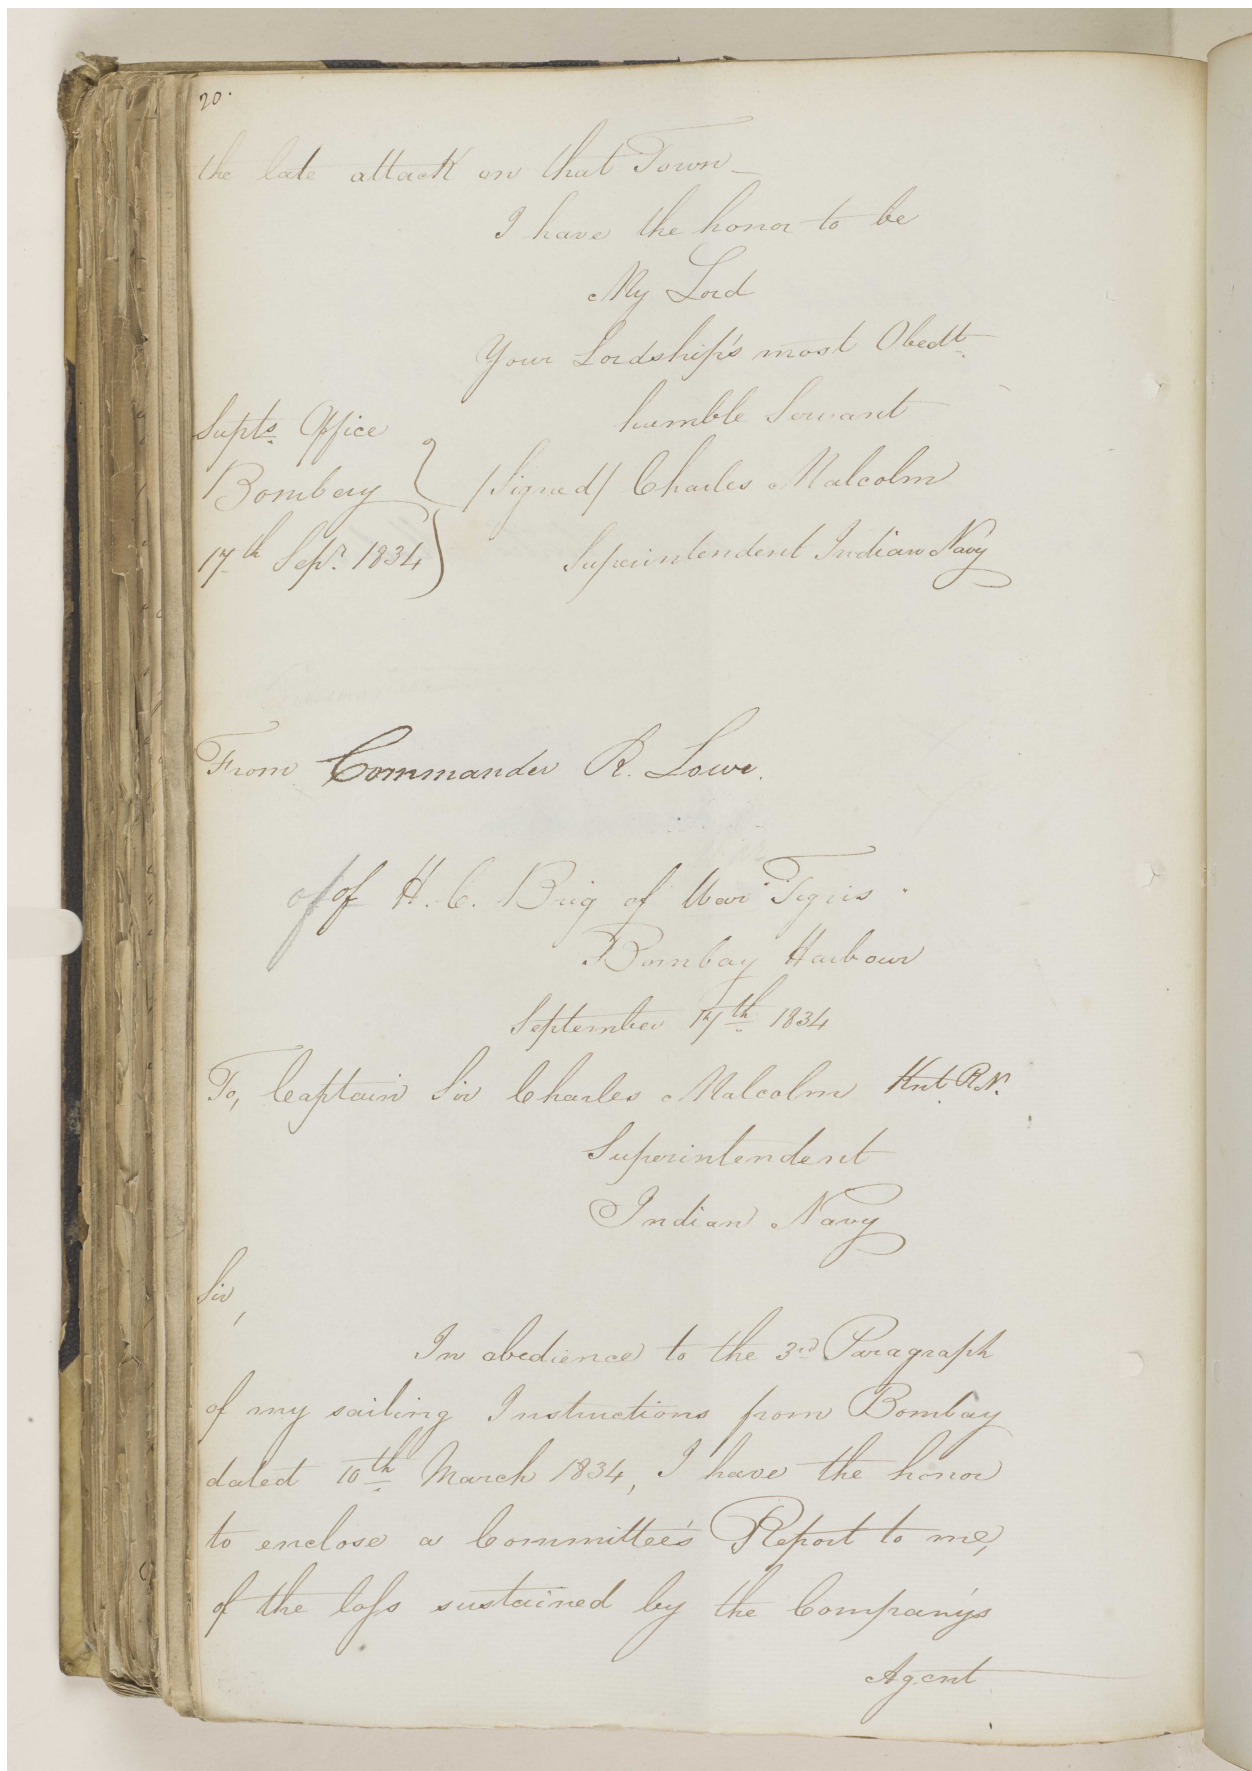 20.
the late attack on that Town_
I have the honor to be
My Lord
Your Lordship's most Obedt.
humble Servant
Supts. Office
Bombay
/Signed/ Charles Malcolm
17th Sepr. 1834
Superintendent Indian Navy
From Commander R. Lowe.
of H. C. Brig of War "Tigris"
Bombay Harbour
September 17th 1834
To, Captain Sir Charles Malcolm Knt. R.N.
Superintendent
Indian Navy
Sir,
In obedience to the 3rd Paragraph
of my sailing Instructions from Bombay
dated 10th March 1834, I have the honor
to enclose a Committee's Report to me,
of the loſs sustained by the Company's
Agent